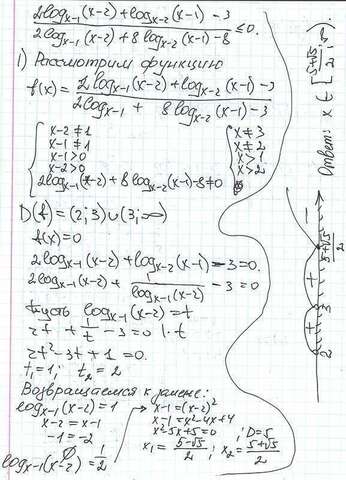 2log_{x-1}(x-2)+log_{x-2}(x-1)-3
2log_{x-1}(x-2)+8log_{x-2}(x-1)-8 ≤0.
1) Рассмотрим функцию
f(x)= 2log_{x-1}(x-2)+log_{x-2}(x-1)-3
2log_{x-1} + 8log_{x-2}(x-1)-3
x-2≠1
x-1≠1
x-1>0
x-2>0
2log_{x-1}(x-2)+8log_{x-2}(x-1)-8≠0
x≠3
x≠2
x>1
x>2
D(f)=(2;3)∪(3;∞)
f(x)=0
2log_{x-1}(x-2)+log_{x-2}(x-1)-3=0.
2log_{x-1}(x-2)+ 1/log_{x-1}(x-2) -3=0
Пусть log_{x-1}(x-2)=t
2t + 1/t -3=0 |·t
2t²-3t+1=0.
t₁=1; t₂=2
Возвращаемся к замене:
log_{x-1}(x-2)=1
x-2=x-1
-1=-2
∅
log_{x-1}(x-2)=1/2
x-1=(x-2)²
x-1=x²-4x+4
x²-5x+5=0 ; D=5
x₁= 5-√5/2 ; x₂= 5+√5/2
2 + 3 + 5+√5/2 -
Ответ: x ∈ [5+√5/2;